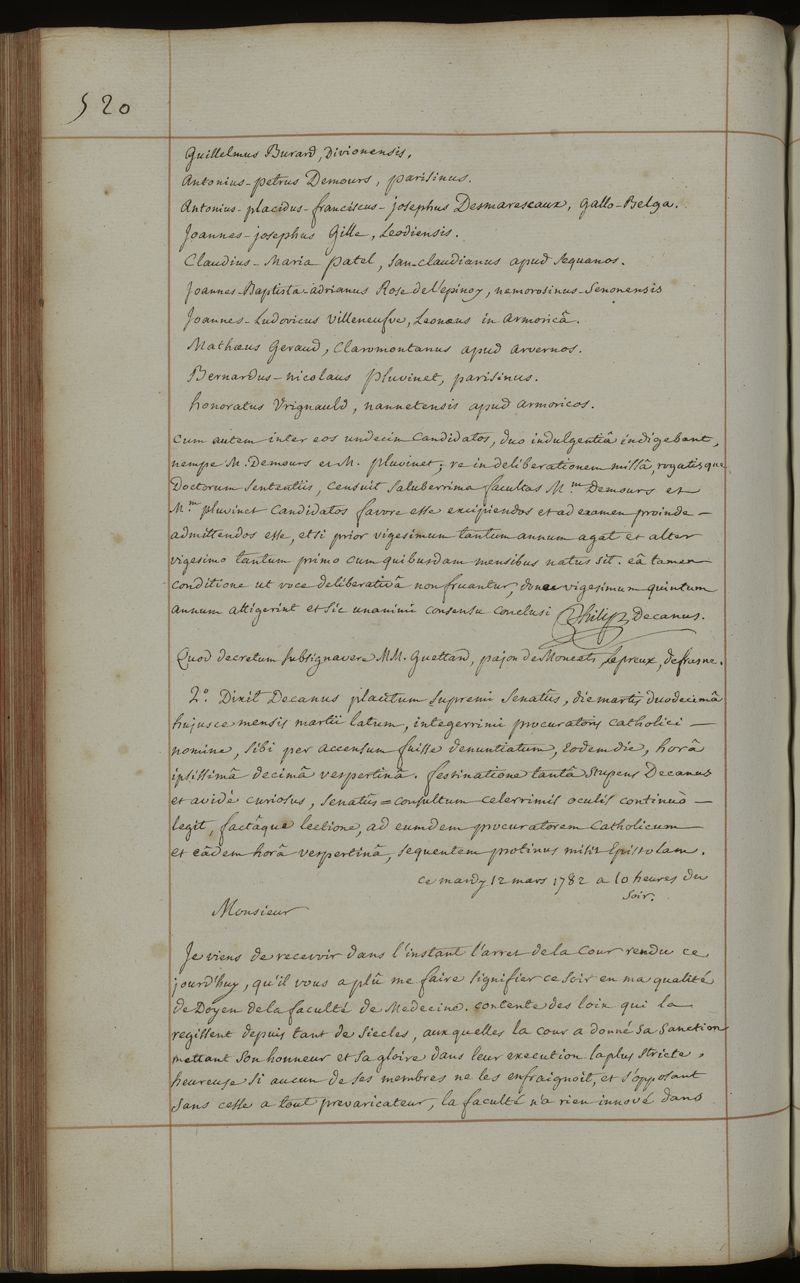 520
Guillelmus Burard, Divionensis.
Antonius-petrus Demours, parisinus.
Antonius-placidus-franciscus-josephus Desmarescaux, Gallo-Belga.
Joannes-josephus Gille, Leodiensis.
Claudius-Maria Patel, San-claudianus apud Sequanos.
Joannes-Baptista-adrianus Rose de l'epinoy, nemorosinus-Senonensis
Joannes-Ludovicus Villeneufve, Leonæus in Armoricâ.
Mathæus Geraud, Claromontanus apud arvernos.
Bernardus-nicolaus Pluvinet, parisinus.
honoratus Vrignauld, nannetensis apud armoricos.
Cum autem inter eos undecim Candidatos, duo indulgentiâ indigebant,
nempe M. Demours et M. Pluvinet; re in deliberationem missâ, rogatisque
Doctorum Sententiis, Censuit Saluberrima facultas M.m Demours et
M.m pluvinet Candidatos favore esse excipiendos et ad examen proinde -
admittendos esse, etsi prior vigesimum tantum annum agat et alter
vigesimo tantum primo cum quibusdam mensibus natus sit. eâ tamen
conditione ut voce deliberativâ non fruantur, donec vigesimum quintum
annum attigerint et sic unanimi consensu conclusi Philip, Decanus.
Quod decretum subsignavere MM. Guettard, pajon des Moncets, Lepreux, defrasne.
2.º Dixit Decanus placitum Supremi Senatûs, die martis duodecimâ
hujusce mensis martii latum, integerrimi procuratoris Catholici -
nomine, sibi per accensum fuisse denuntiatum, Eodem die, horâ
ipsissimâ decimâ vespertinâ. festinatione tantâ Stupens Decanus
et avidè curiosus, Senatûs=consultum celerrimis oculis continuò -
legit, factâque lectione, ad eumdem procuratorem Catholicum -
et eâdem horâ vespertinâ, sequentem protinus misit Epistolam.
ce mardy 12 mars 1782 a 10 heures du
Soir.
Monsieur
Je viens de recevoir dans l'instant l'arret de la Cour rendu ce
jourd'huy, qu'il vous a plû me faire signifier ce soir en ma qualité
de Doyen de la faculté de Medecine. contente des loix qui la
regissent depuis tant de Siecles, aux quelles la cour a donné Sa Sanction
mettant Son honneur et Sa gloire dans leur execution la plus Stricte,
heureuse Si aucun de Ses membres ne les enfraignoit, et s'opposant
Sans cesse a tout prevaricateur, la faculté n'a rien innové dans